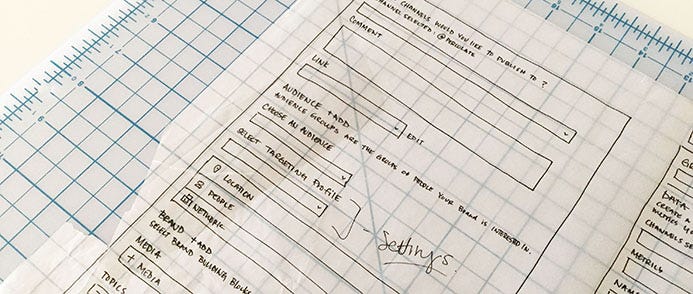 CHANNELS WOULD YOU LIKE TO PUBLISH TO ?
CHANNEL SELECTED: @PERCOLATE
COMMENT
LINK
AUDIENCE +ADD
EDIT
AUDIENCE GROUPS ARE THE GROUPS OF PEOPLE YOUR BRAND IS INTERESTED IN.
CHOOSE AN AUDIENCE
SELECT TARGETING PROFILE
LOCATION
PEOPLE
NETWORK
Settings
BRAND +ADD
SELECT BRAND BUILDING BLOCKS
MEDIA
+ MEDIA
TOPICS
DATA
CREATE
CHANNELS
METRICS